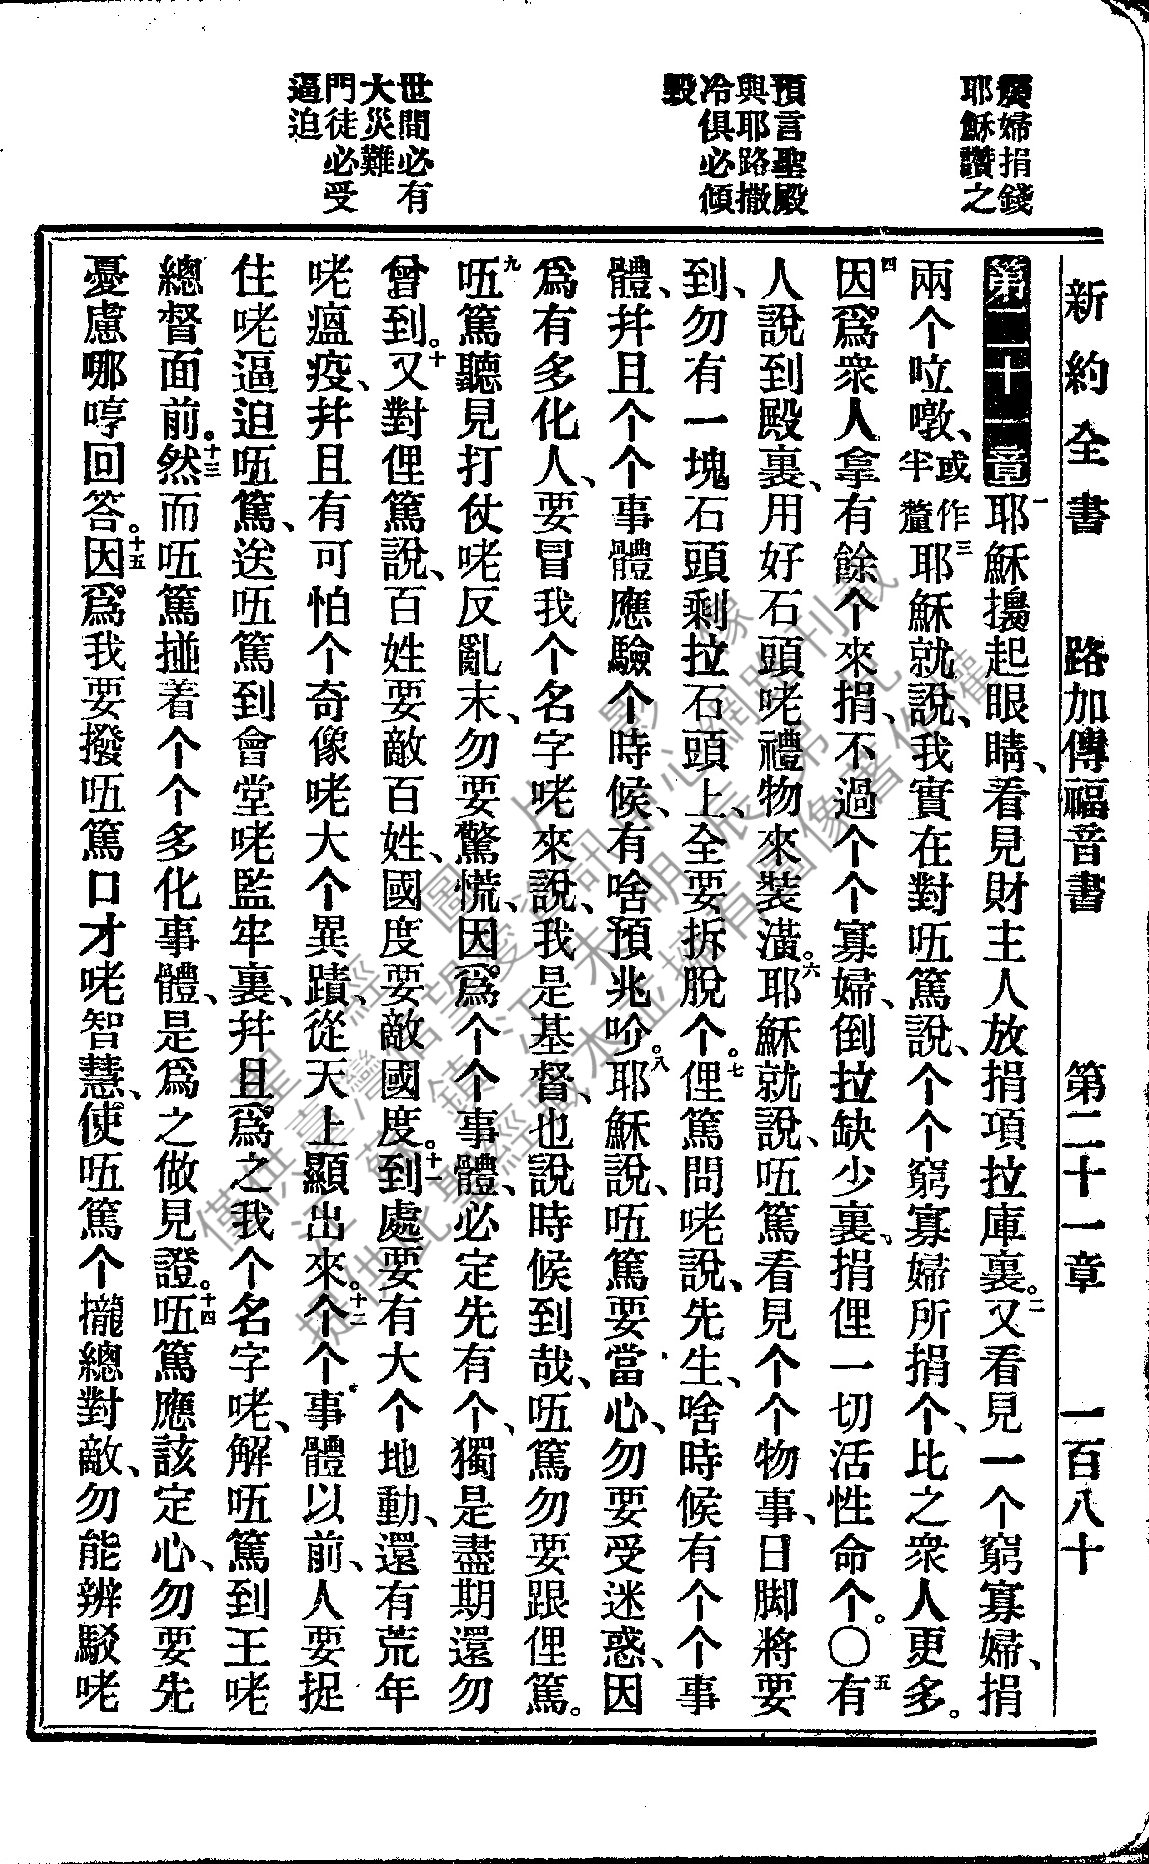 新約全書 路加傳福音書 第二十一章 一百八十
嫠婦捐錢
耶穌讚之
預言聖殿
與耶路撒
冷俱必傾
毀
世間必有
大災難
門徒必受
逼迫
第二十一章一耶穌擡起眼睛、看見財主人放捐項拉庫裏。二又看見一个窮寡婦、捐
兩个呅噋、或作半釐三耶穌就說、我實在對𠲎篤說、个个窮寡婦所捐个、比之衆人更多。
四因爲衆人拿有餘个來捐、不過个个寡婦、倒拉缺少裏、捐俚一切活性命个。〇五有
人說到殿裏、用好石頭咾禮物來裝潢。六耶穌就說、𠲎篤看見个个物事、日脚將要
到、勿有一塊石頭剩拉石頭上、全要拆脫个。七俚篤問咾說、先生、啥時候有个个事
體、幷且个个事體應驗个時候、有啥預兆吤。八耶穌說、𠲎篤要當心、勿要受迷惑、因
爲有多化人、要冒我个名字咾來說、我是基督、也說時候到哉、𠲎篤勿要跟俚篤。
九𠲎篤聽見打仗咾反亂末、勿要驚慌、因爲个个事體、必定先有个、獨是盡期還勿
曾到。十又對俚篤說、百姓要敵百姓、國度要敵國度。十一到處要有大个地動、還有荒年
咾瘟疫、幷且有可怕个奇像咾大个異蹟、從天上顯出來。十二个个事體以前、人要捉
住咾逼迫𠲎篤、送𠲎篤到會堂咾監牢裏、幷且爲之我个名字咾、解𠲎篤到王咾
總督面前。十三然而𠲎篤掽着个个多化事體、是爲之做見證。十四𠲎篤應該定心、勿要先
憂慮哪哼回答。十五因爲我要撥𠲎篤口才咾智慧、使𠲎篤个攏總對敵、勿能辨駁咾
聖經圖片影像
僅供臺灣信望愛資訊中心網路刊載
江蘇鎮江朱明辰弟兄
提供此聖經藏本並擁有圖像著作權